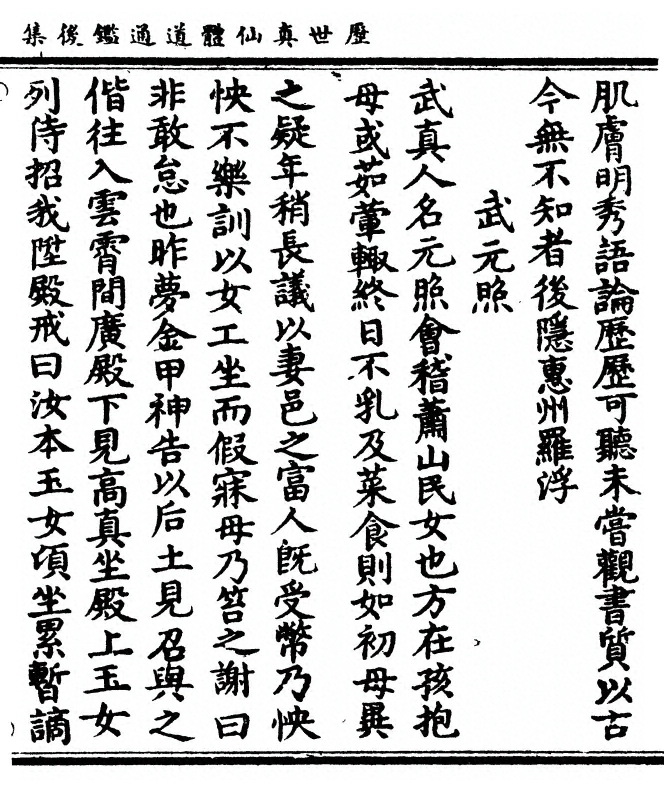 歷世真仙體道通鑑後集
肌膚明秀語論歷歷可聽未嘗觀書質以古
今無不知者後隱惠州羅浮
武元照
武真人名元照會稽蕭山民女也方在孩抱
母或茹葷輒終日不乳及菜食則如初母異
之疑年稍長議以妻邑之富人旣受幣乃怏
怏不樂訓以女工坐而假寐母乃笞之謝曰
非敢怠也昨夢金甲神告以后土見召與之
偕往入雲霄間廣殿下見高真坐殿上玉女
列侍招我陞殿戒曰汝本玉女頃坐累暫謫